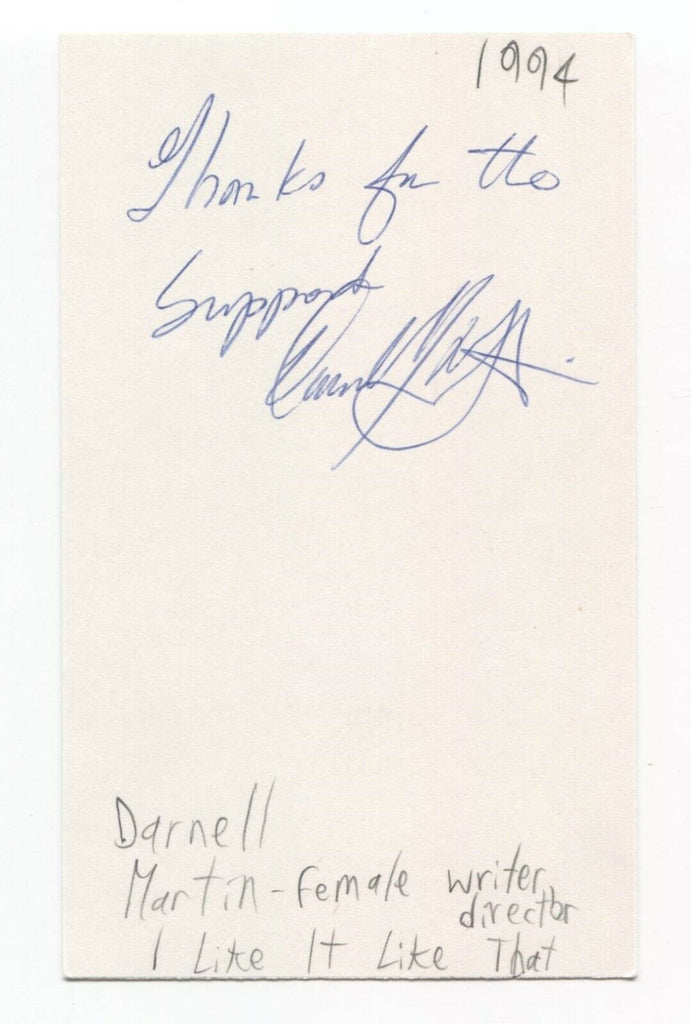 1994
Thanks for the
Support
Darnell Martin
Darnell
Martin - female writer,
director
I Like It Like That